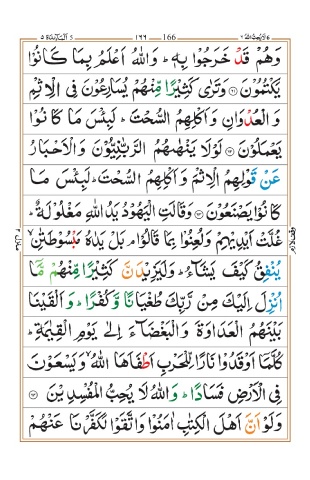 المآئدة ٥ ١٦٦ 166 لا يحب الله ٦
وَهُمْ قَدْ خَرَجُوْا بِهٖ ؕ وَاللّٰهُ اَعْلَمُ بِمَا كَانُوْا
يَكْتُمُوْنَ ﴿۶۱﴾ وَتَرٰى كَثِيْرًا مِّنْهُمْ يُسَارِعُوْنَ فِى الْاِثْمِ
وَالْعُدْوَانِ وَاَكْلِهِمُ السُّحْتَ ؕ لَبِئْسَ مَا كَانُوْا
يَعْمَلُوْنَ ﴿۶۲﴾ لَوْلَا يَنْهٰىهُمُ الرَّبّٰنِيُّوْنَ وَالْاَحْبَارُ
عَنْ قَوْلِهِمُ الْاِثْمَ وَاَكْلِهِمُ السُّحْتَ ؕ لَبِئْسَ مَا
كَانُوْا يَصْنَعُوْنَ ﴿۶۳﴾ وَقَالَتِ الْيَهُوْدُ يَدُ اللّٰهِ مَغْلُوْلَةٌ ؕ
غُلَّتْ اَيْدِيْهِمْ وَلُعِنُوْا بِمَا قَالُوْا ۘ بَلْ يَدٰهُ مَبْسُوْطَتٰنِ ۙ
يُنْفِقُ كَيْفَ يَشَآءُ ؕ وَلَيَزِيْدَنَّ كَثِيْرًا مِّنْهُمْ مَّاۤ
اُنْزِلَ اِلَيْكَ مِنْ رَّبِّكَ طُغْيَانًا وَّكُفْرًا ؕ وَاَلْقَيْنَا
بَيْنَهُمُ الْعَدَاوَةَ وَالْبَغْضَآءَ اِلٰى يَوْمِ الْقِيٰمَةِ ؕ
كُلَّمَاۤ اَوْقَدُوْا نَارًا لِّلْحَرْبِ اَطْفَاَهَا اللّٰهُ ۙ وَيَسْعَوْنَ
فِى الْاَرْضِ فَسَادًا ؕ وَاللّٰهُ لَا يُحِبُّ الْمُفْسِدِيْنَ ﴿۶۴﴾
وَلَوْ اَنَّ اَهْلَ الْكِتٰبِ اٰمَنُوْا وَاتَّقَوْا لَكَفَّرْنَا عَنْهُمْ